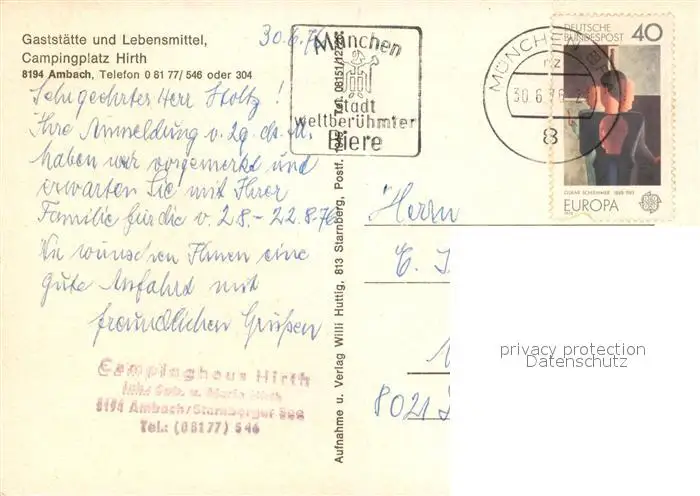 Gaststätte und Lebensmittel,
Campingplatz Hirth
8194 Ambach, Telefon 0 81 77/ 546 oder 304
30.6.76
Sehr geehrter Herr Stoltz !
Ihre Anmeldung v. 29. ds. M.
haben wir vorgemerkt und
erwarten Sie mit Ihrer
Familie für die v. 2.8. - 22.8.76
Wir wünschen Ihnen eine
gute Anfahrt mit
freundlichen Grüßen
Campinghaus Hirth
Inh.: Geb. u. Maria Hirth
8194 Ambach/Starnberger See
Tel.: (08177) 546
Aufnahme u. Verlag Willi Huttig, 813 Starnberg, Postf. Tel. 08151/
München
Stadt
weltberühmter
Biere
MÜNCHEN
30.6.76
8
DEUTSCHE
BUNDESPOST
40
OSKAR SCHLEMMER 1888-1943
EUROPA
Herrn
8021
privacy protection
Datenschutz